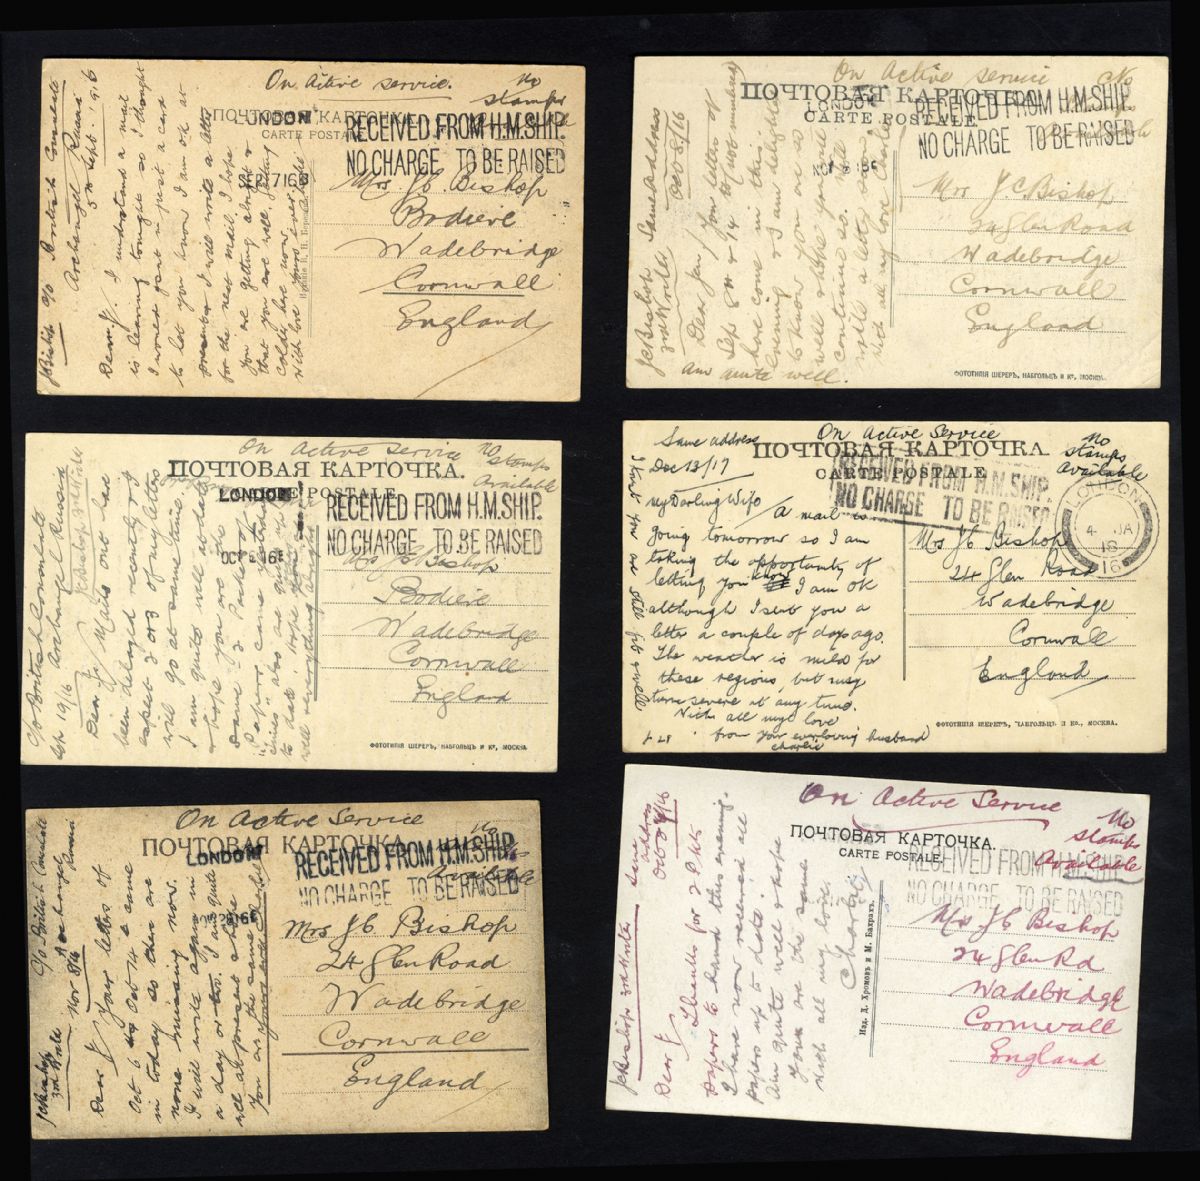 On Active Service.
No
stamps
ПОЧТОВАЯ КАРТОЧКА.
CARTE POSTALE
LONDON
RECEIVED FROM H.M.SHIP.
NO CHARGE TO BE RAISED
Mrs. J.C. Bishop
Bodieve
Wadebridge
Cornwall
England
c/o British Consulate
Archangel Russia
5th Sept. 1916
Dear J. I understand a mail
is leaving tonight so I thought
I would just a card
to let you know I am OK at
present I will write a letter
for the next mail. I hope
you are getting about &
that you are well,
colds have now
with love
On Active Service
No
ПОЧТОВАЯ КАРТОЧКА
CARTE POSTALE
LONDON
RECEIVED FROM H.M.SHIP.
NO CHARGE TO BE RAISED
Mrs J.C. Bishop
24 Glen Road
Wadebridge
Cornwall
England
ФОТОТИПІЯ ШЕРЕРЪ, НАБГОЛЬЦЪ И Кº, МОСКВА.
JC Bishop Same address
3rd Writer Oct 8/16
Dear J your letters of
Sep 8th & 14
have come in this
evening & I am delighted
to know you are so
well & hope you will
continue so. Will
write a letter soon
with all my love Charlie
am quite well.
On Active Service
No
stamps
Available
ПОЧТОВАЯ КАРТОЧКА.
POSTALE
LONDON
RECEIVED FROM H.M.SHIP.
NO CHARGE TO BE RAISED
OCT 16
Mrs J C Bishop
Bodieve
Wadebridge
Cornwall
England
ФОТОТИПІЯ ШЕРЕРЪ, НАБГОЛЬЦЪ И Кº, МОСКВА
c/o British Consulate
Archangel Russia
Sep 19/16 JC Bishop 3rd Writer
Dear J. Mails out have
been delayed recently & I
expect 2 or 3 of my letters
will go at same time.
I am quite well at date
& hope you are the
same. 2 packets of
papers came yesterday
to date. Hope
well & everything alright
Same address
Dec 13/17
On Active Service
No
stamps
Available
ПОЧТОВАЯ КАРТОЧКА.
CARTE POSTALE
RECEIVED FROM H.M.SHIP.
NO CHARGE TO BE RAISED
LONDON
4 JA
18
16
Mrs J C Bishop
24 Glen Road
Wadebridge
Cornwall
England
ФОТОТИПІЯ ШЕРЕРЪ, НАБГОЛЬЦЪ И Кº, МОСКВА.
My Darling Wife
A mail is
going tomorrow so I am
taking the opportunity of
letting you know I am OK
although I sent you a
letter a couple of days ago.
The weather is mild for
these regions, but may
turn severe at any time.
With all my love
from your everloving husband
Charlie
I trust you are still fit & well
On Active Service
No
Available
ПОЧТОВАЯ КАРТОЧКА.
LONDON
RECEIVED FROM H.M.SHIP.
NO CHARGE TO BE RAISED
Mrs J C Bishop
24 Glen Road
Wadebridge
Cornwall
England
c/o British Consulate
Archangel
Russia
JC Bishop Nov 8/16
3rd Write
Dear J Your letters of
Oct 6 to Oct 14 came
in today so there are
none missing now.
I will write again in
a day or two. I am quite
well at present & hope
you are the same.
On Active Service
No
stamps
Available
ПОЧТОВАЯ КАРТОЧКА.
CARTE POSTALE.
RECEIVED FROM H.M.SHIP.
NO CHARGE TO BE RAISED
Mrs J C Bishop
24 Glen Rd
Wadebridge
Cornwall
England
Изд. Д. Хромовъ и М. Бахрахъ.
JC Bishop 3rd Writer Same address
Dear J Thanks for 2 pkts
papers to hand this evening.
I have now received all
papers up to date. I
am quite well & hope
you are the same.
With all my love
Charley